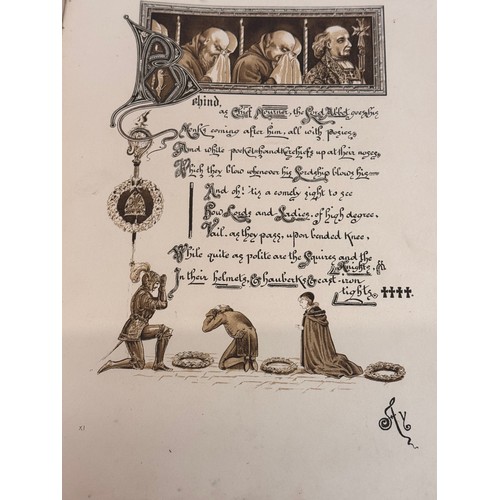 Behind,
as Chief Mourner, the Lord Abbot goes his
Monks coming after him, all with posies,
And white pocket-handkerchiefs up at their noses,
Which they blow whenever his Lordship blows his—
And oh! 'tis a comely sight to see
How Lords and Ladies, of high degree,
Vail, as they pass, upon bended knee,
While quite as polite are the Squires and the
Knights,
In their helmets, & hauberks, & cast-iron
tights.
XI